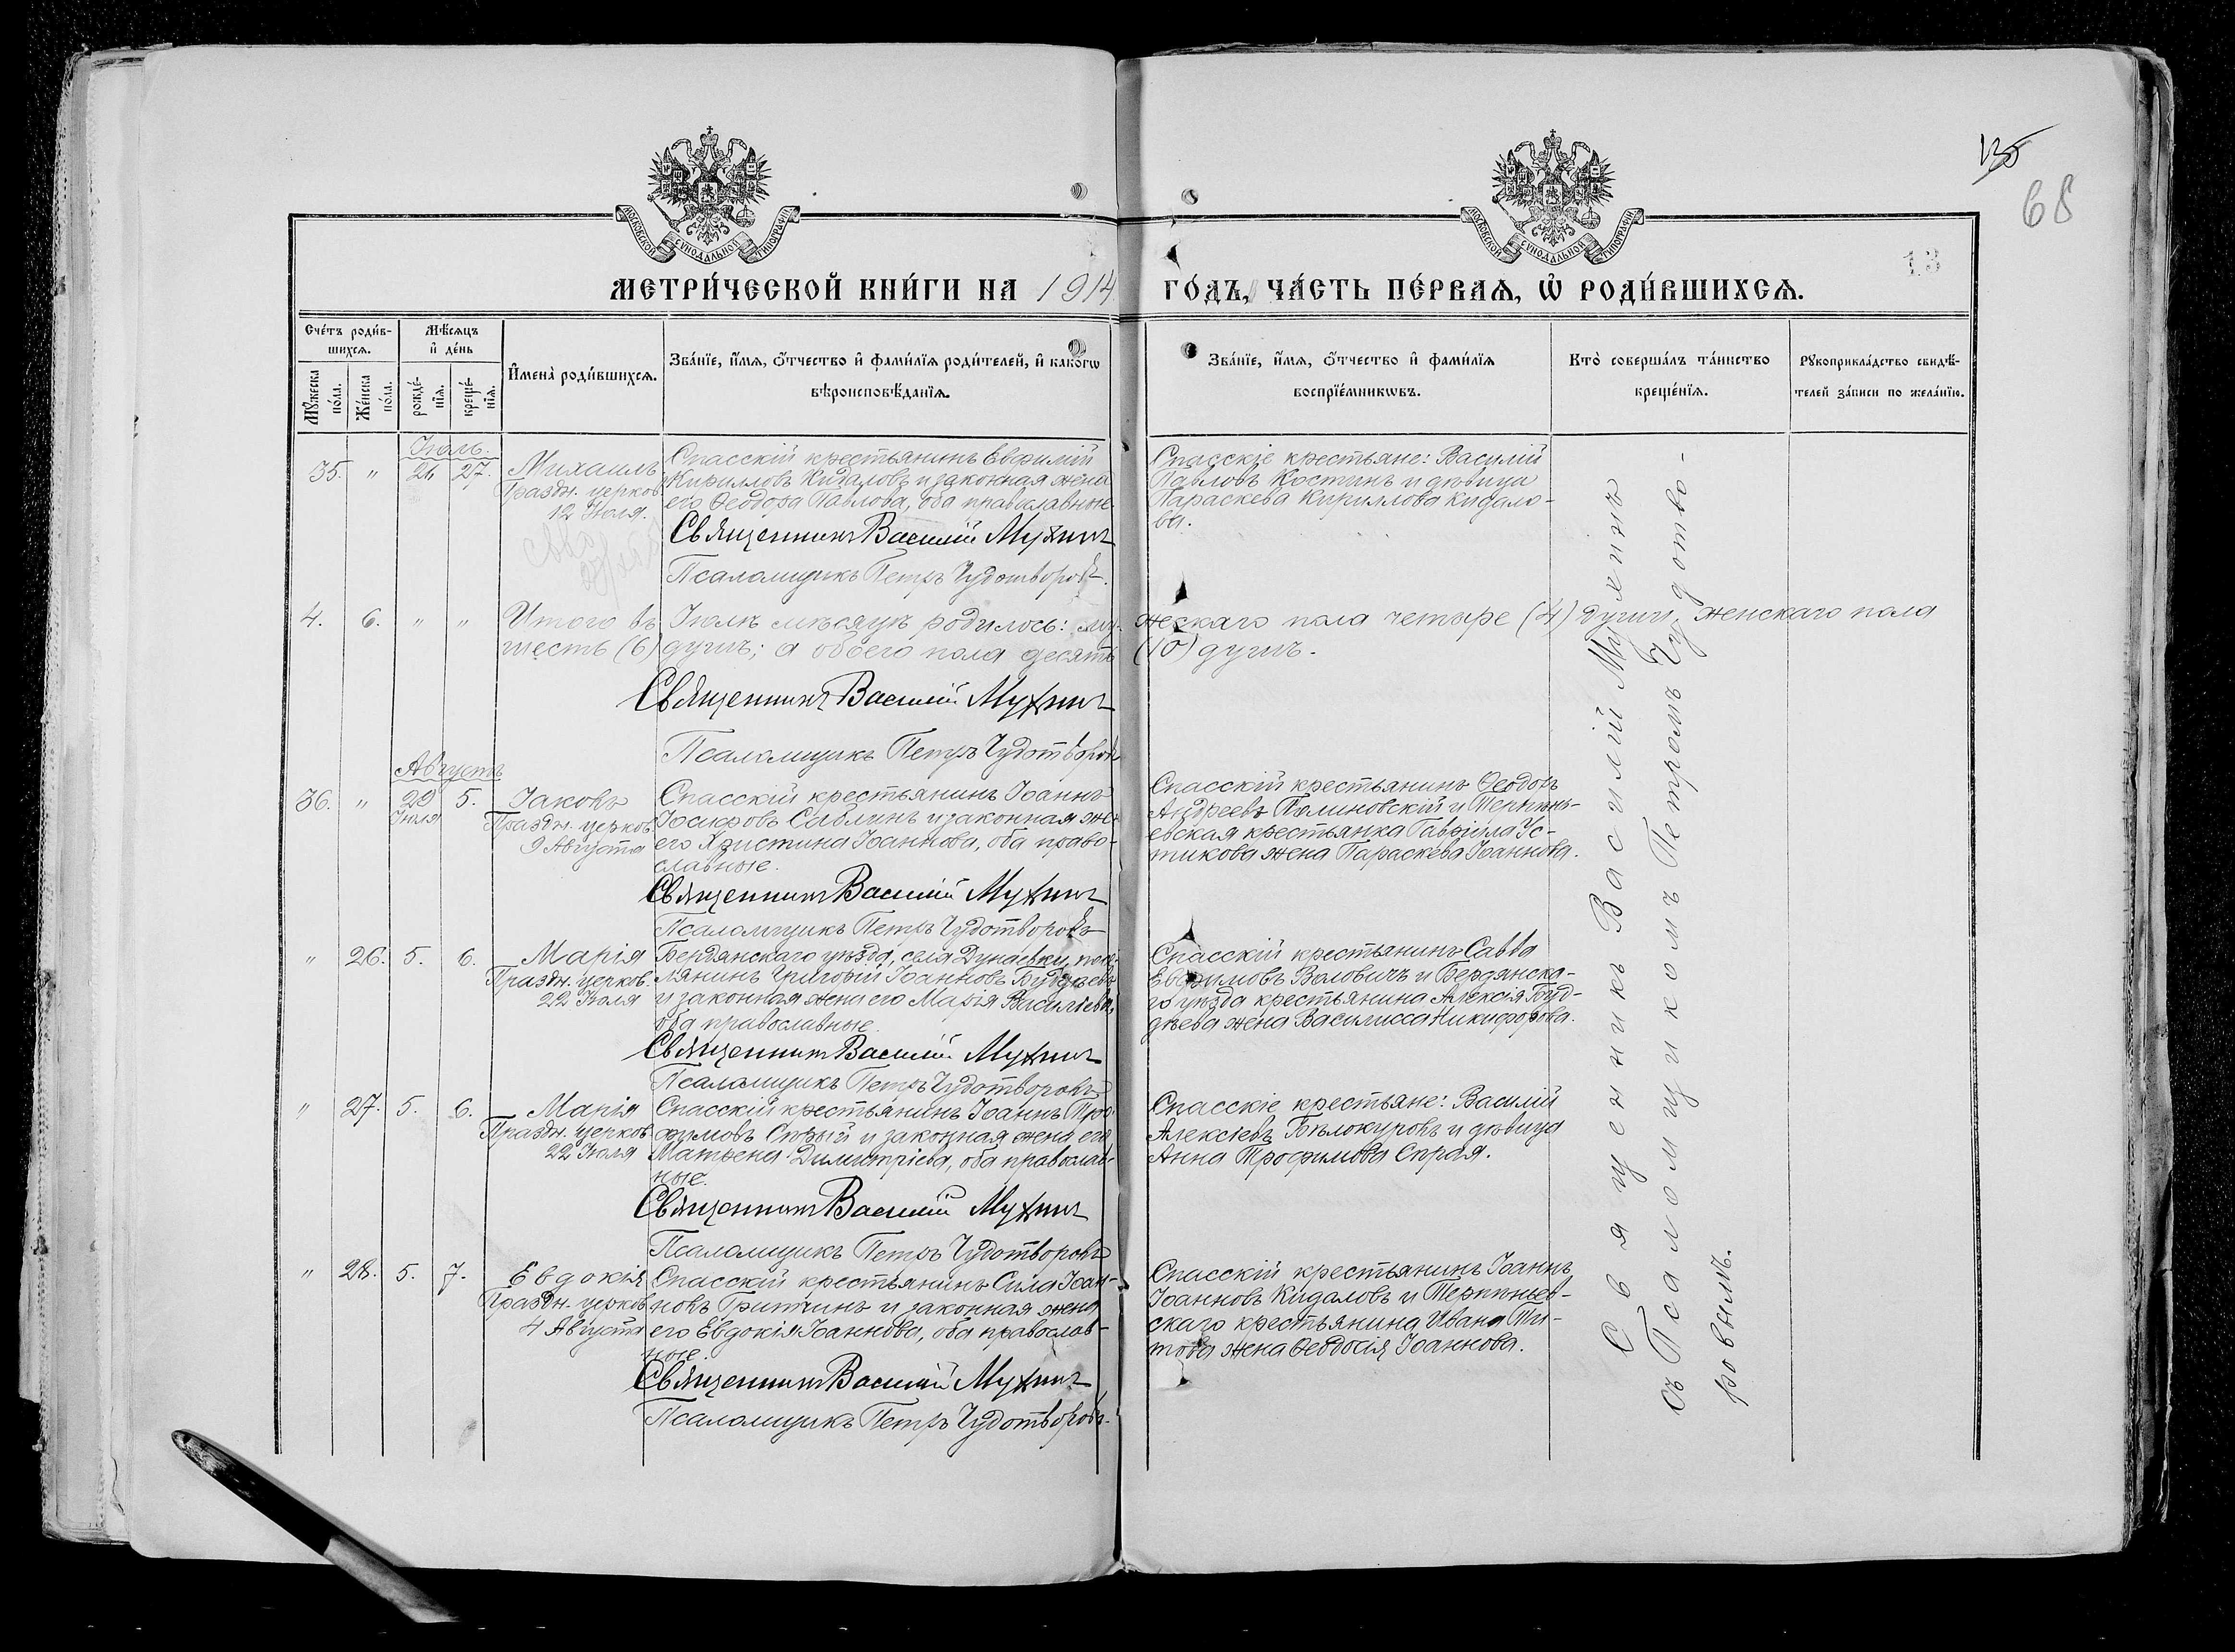 135
68
13
МОСКОВСКОЙ СѴНОДАЛЬНОЙ ТИПОГРАФІИ
МОСКОВСКОЙ СѴНОДАЛЬНОЙ ТИПОГРАФІИ
МЕТРИ́ЧЕСКОЙ КНИ́ГИ НА 1914 ГО́ДЪ, ЧА́СТЬ ПЕ́РВАѦ, Ѡ҆ РОДИ́ВШИХСѦ.
Сче́тъ роди́в-
шихсѧ.
Мѣ́сѧцъ
и҆ де́нь
Мꙋ́жеска
по́ла.
Же́нска
по́ла.
рожде́-
нїѧ.
креще́-
нїѧ.
И҆мена̀ роди́вшихсѧ.
Зва́нїе, и҆́мѧ, ѻ҆́тчество и҆ фами́лїѧ роди́телей, и҆ како́гѡ
вѣроисповѣ́данїѧ.
Зва́нїе, и҆́мѧ, ѻ҆́тчество и҆ фами́лїѧ
воспрїе́мникѡвъ.
Кто̀ соверша́лъ та́инство
креще́нїѧ.
Рꙋкоприкла́дство свидѣ́-
телей за́писи по жела́нїю.
Іюль.
35. " 26 27. Михаилъ
Праздн. церков
12 Іюля.
Спасскій крестьянинъ Евфимій
Кирилловъ Кидаловъ и законная жена
его Ѳеодора Павлова, оба православные.
Священникъ Василий Мухинъ
Псаломщикъ Петръ Чудотворовъ.
Спасскіе крестьяне: Василій
Павловъ Костинъ и дѣвица
Параскева Кириллова Кидало-
ва.
4. 6. " " Итого въ Іюлѣ мѣсяцѣ родилось: му- жескаго пола четыре (4) души, женскаго пола
шесть (6) душъ; а обоего пола десять (10) душъ.
Священникъ Василий Мухинъ
Псаломщикъ Петръ Чудотворовъ
Августъ
36. " 29 5. Іаковъ
Іюля
Праздн. церков.
9 Августа
Спасскій крестьянинъ Іоаннъ
Іосифовъ Саблинъ и законная же-
его Христина Іоаннова, оба право-
славные.
Священникъ Василий Мухинъ
Псаломщикъ Петръ Чудотворовъ
Спасскій крестьянинъ Ѳеодоръ
Андреевъ Полиновскій и Терпѣнь-
евская крестьянка Гавріила Ус-
тикова жена Параскева Іоаннова.
" 26. 5. 6. Марія
Праздн. церков.
22 Іюля
Бердянскаго уѣзда, села Дунаевки, посе-
лянинъ Григорій Іоанновъ
и законная жена его Марія Василіева,
оба православные.
Священникъ Василий Мухинъ
Псаломщикъ Петръ Чудотворовъ
Спасскій крестьянинъ Савва
Евфимовъ Воловичъ и Бердянска-
го уѣзда крестьянина Алексія Буд-
дѣева жена Василисса Никифорова.
" 27. 5. 6. Марія
Праздн. церков
22 Іюля
Спасскій крестьянинъ Іоаннъ Тро-
фимовъ Сѣрый и законная жена его
Матѳена Димитріева, оба православ-
ные.
Священникъ Василий Мухинъ
Псаломщикъ Петръ Чудотворовъ
Спасскіе крестьяне: Василій
Алексіевъ Бѣлокуровъ и дѣвица
Анна Трофимова Сѣрая.
" 28. 5. 7. Евдокія
Праздн. церков
4 Августа
Спасскій крестьянинъ Сила Іоан-
новъ Гритчинъ и законная жена
его Евдокія Іоаннова, оба православ-
ные.
Священникъ Василий Мухинъ
Псаломщикъ Петръ Чудотворовъ.
Спасскій крестьянинъ Іоаннъ
Іоанновъ Кидаловъ и Терпѣньев-
скаго крестьянина Ивана Ти-
това жена Ѳеодосія Іоаннова.
Священникъ Василій Мухинъ
съ Псаломщикомъ Петромъ Чудотво-
ровымъ.